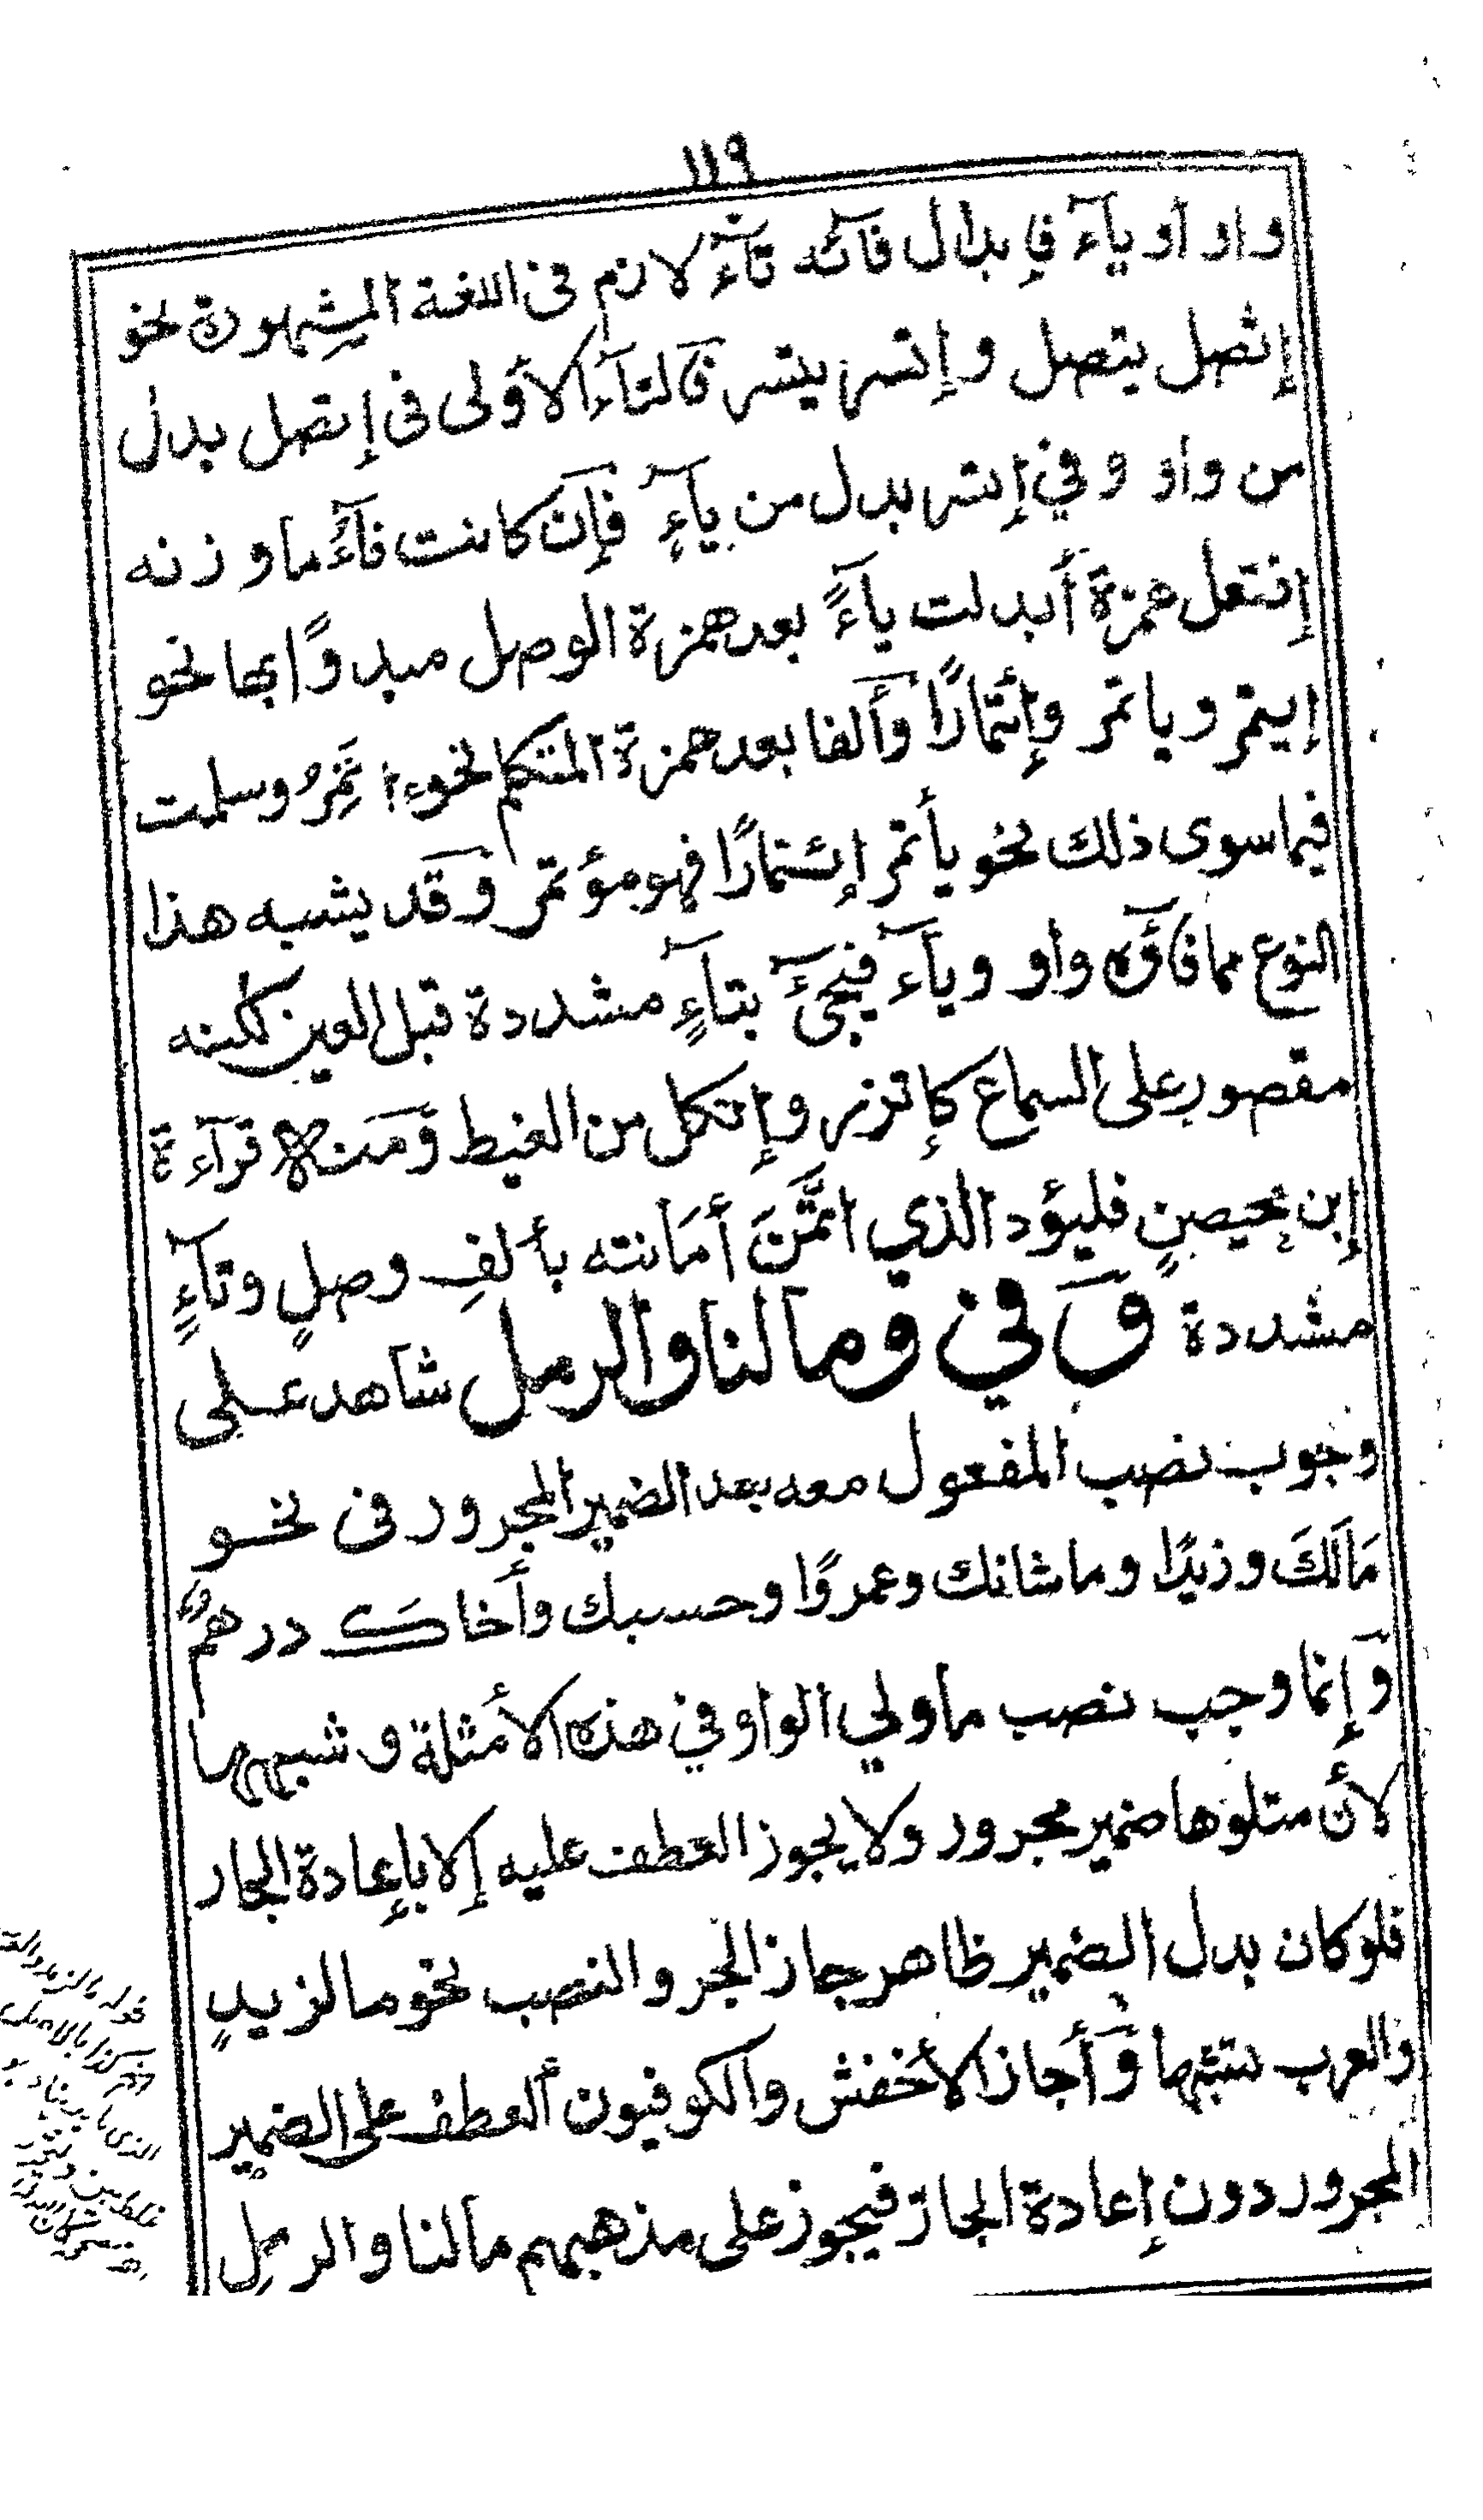 ١١٩
واو أو ياء فإبدال فائه تاء لازم فى اللغة المشهورة نحو
إتصل يتصل وإتسر يتسر فالتاء الأولى فى إتصل بدل
من واو وفي إتسر بدل من ياءٍ فإن كانت فاءُ ما وزنه
إفتعل همزة أبدلت ياءً بعد همزة الوصل مبدوًا بها نحو
إيتمر وياتمر وإئتمارًا وألفا بعد همزة المتكلم نحو ءاتَمِرُ وسلمت
فيما سوى ذلك نحو يأتمر إئتمارًا فهو مؤتمر وقد يشبه هذا
النوع مما فاؤه واو وياء فيجىء بتاءٍ مشددة قبل العين لكنه
مقصور على السماع كإتزر وإتكل من الغيط ومنه قراءة
إبن محيصنٍ فليؤد الذي اتَّمَنَ أمَانته بألفِ وصلٍ وتاءٍ
مشددة وَفي وما لنا والرمل شاهد على
وجوب نصب المفعول معه بعد الضمير المجرور فى نحو
مَالَكَ وزيدًا وما شانك وعمروًا وحسبك وأخاكَ درهمٌ
وإنما وجب نصب ما ولي الواو في هذه الأمثلة وشبهها
لأن متلوها ضمير مجرور ولا يجوز العطف عليه إلا بإعادة الجار
فلو كان بدل الضمير ظاهر جاز الجر والنصب نحو ما لزيدٍ
والعرب يتبتها وأجاز الأخفش والكوفيون ألعطف على الضمير
المجرور دون إعادة الجار فيجوز على مذهبهم ما لنا والرملِ